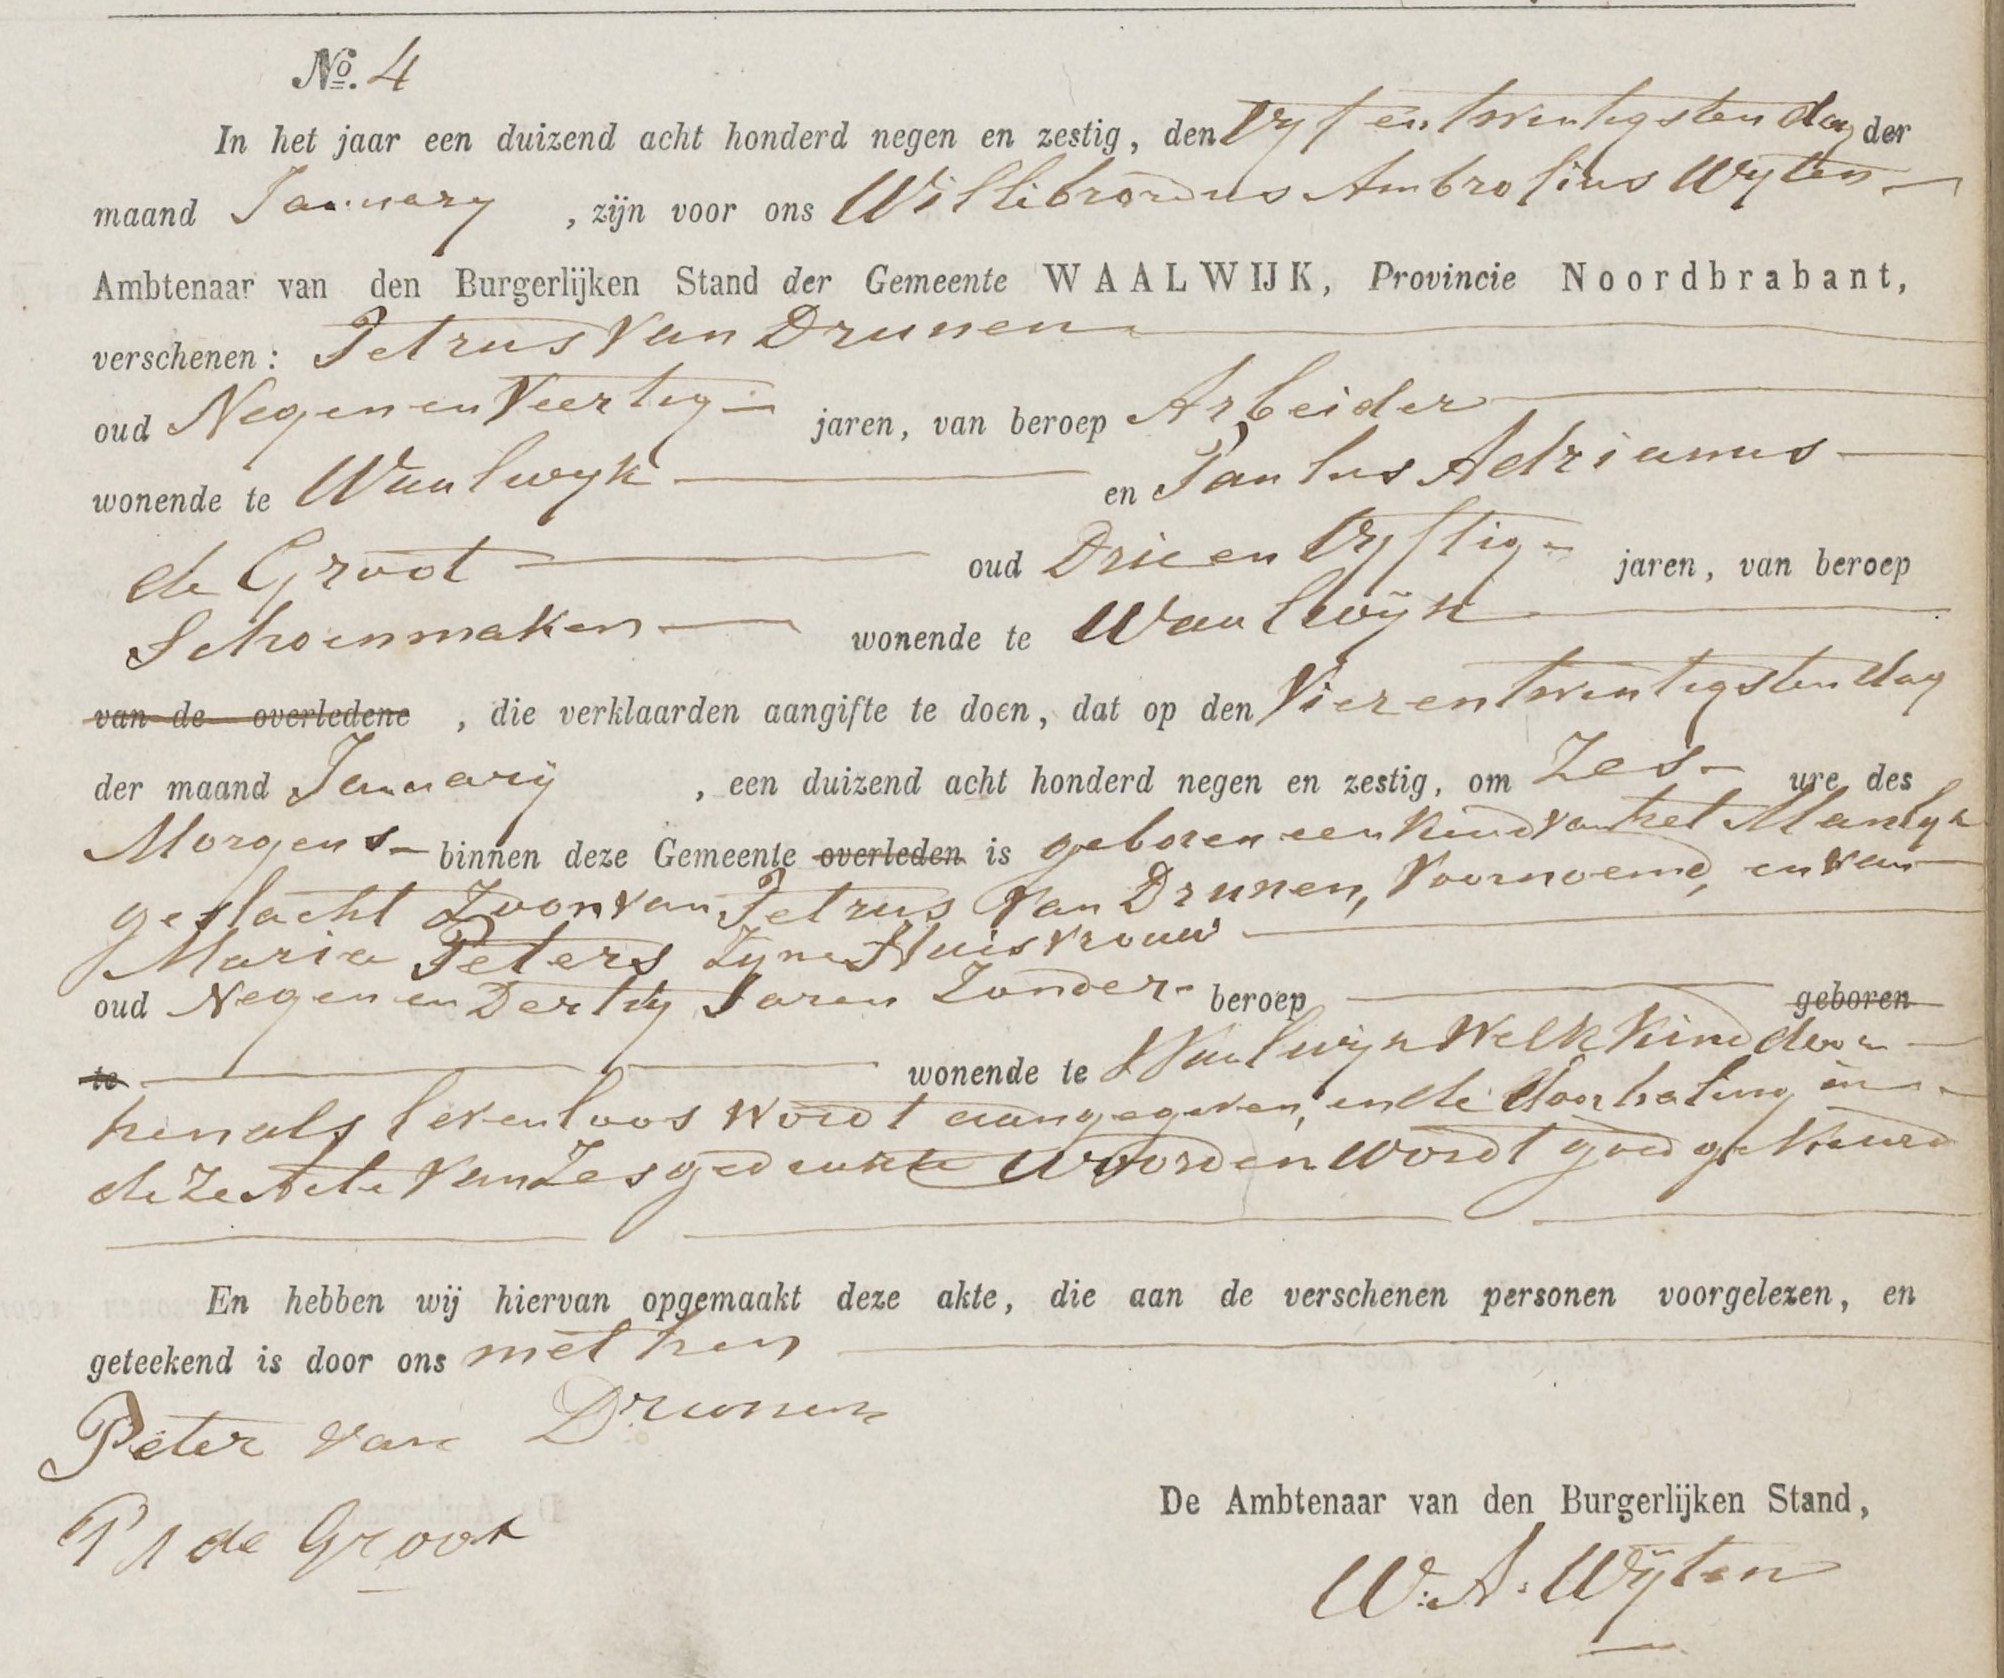 No. 4
In het jaar een duizend acht honderd negen en zestig, den Vyf en twintigsten dag der
maand January , zijn voor ons Willibrordus Ambrosius Wyten
Ambtenaar van den Burgerlijken Stand der Gemeente WAALWIJK, Provincie Noordbrabant,
verschenen: Petrus Van Drunen
oud Negen en Veertig jaren, van beroep Arbeider
wonende te Waalwyk en Paulus Adrianus
de Groot oud Drie en Vyftig jaren, van beroep
Schoenmaker wonende te Waalwÿk
van de overledene , die verklaarden aangifte te doen, dat op den Vier en twintigsten dag
der maand Januarÿ , een duizend acht honderd negen en zestig, om Zes ure des
Morgens binnen deze Gemeente overleden is geboren een Kind van het Manlyk
geslacht Zoon van Petrus Van Drunen, Voornoemd, en van
Maria Peters Zyne Huisvrouw
oud Negen en Dertig Jaren Zonder beroep geboren
te wonende te Waalwyk Welk Kind door
hen als levenloos wordt aangegeven, en de doorhaling in
deze Acte Van Zes gedrukte Woorden wordt goedgekeurd
En hebben wij hiervan opgemaakt deze akte, die aan de verschenen personen voorgelezen, en
geteekend is door ons met hen
Peter van Drunen
P A de Groot
De Ambtenaar van den Burgerlijken Stand,
W. A. Wÿten